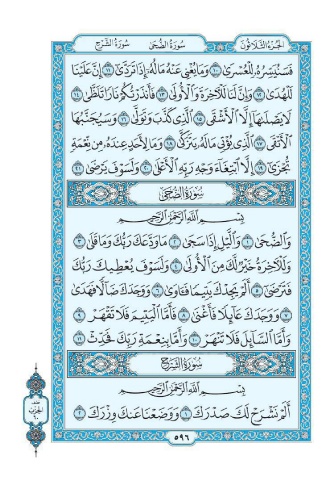 الجزء الثلاثون سورة الضحى سورة الشرح
فَسَنُيَسِّرُهُۥ لِلۡعُسۡرَىٰ ١٠ وَمَا يُغۡنِي عَنۡهُ مَالُهُۥٓ إِذَا تَرَدَّىٰٓ ١١ إِنَّ عَلَيۡنَا
لَلۡهُدَىٰ ١٢ وَإِنَّ لَنَا لَلۡأٓخِرَةَ وَٱلۡأُولَىٰ ١٣ فَأَنذَرۡتُكُمۡ نَارٗا تَلَظَّىٰ ١٤
لَا يَصۡلَىٰهَآ إِلَّا ٱلۡأَشۡقَى ١٥ ٱلَّذِي كَذَّبَ وَتَوَلَّىٰ ١٦ وَسَيُجَنَّبُهَا
ٱلۡأَتۡقَى ١٧ ٱلَّذِي يُؤۡتِي مَالَهُۥ يَتَزَكَّىٰ ١٨ وَمَا لِأَحَدٍ عِندَهُۥ مِن نِّعۡمَةٖ
تُجۡزَىٰٓ ١٩ إِلَّا ٱبۡتِغَآءَ وَجۡهِ رَبِّهِ ٱلۡأَعۡلَىٰ ٢٠ وَلَسَوۡفَ يَرۡضَىٰ ٢١
سورة الضحى
بِسۡمِ ٱللَّهِ ٱلرَّحۡمَٰنِ ٱلرَّحِيمِ
وَٱلضُّحَىٰ ١ وَٱلَّيۡلِ إِذَا سَجَىٰ ٢ مَا وَدَّعَكَ رَبُّكَ وَمَا قَلَىٰ ٣
وَلَلۡأٓخِرَةُ خَيۡرٞ لَّكَ مِنَ ٱلۡأُولَىٰ ٤ وَلَسَوۡفَ يُعۡطِيكَ رَبُّكَ
فَتَرۡضَىٰٓ ٥ أَلَمۡ يَجِدۡكَ يَتِيمٗا فَـَٔاوَىٰ ٦ وَوَجَدَكَ ضَآلّٗا فَهَدَىٰ
٧ وَوَجَدَكَ عَآئِلٗا فَأَغۡنَىٰ ٨ فَأَمَّا ٱلۡيَتِيمَ فَلَا تَقۡهَرۡ ٩
وَأَمَّا ٱلسَّآئِلَ فَلَا تَنۡهَرۡ ١٠ وَأَمَّا بِنِعۡمَةِ رَبِّكَ فَحَدِّثۡ ١١
سورة الشرح
بِسۡمِ ٱللَّهِ ٱلرَّحۡمَٰنِ ٱلرَّحِيمِ
أَلَمۡ نَشۡرَحۡ لَكَ صَدۡرَكَ ١ وَوَضَعۡنَا عَنكَ وِزۡرَكَ ٢
٥٩٦